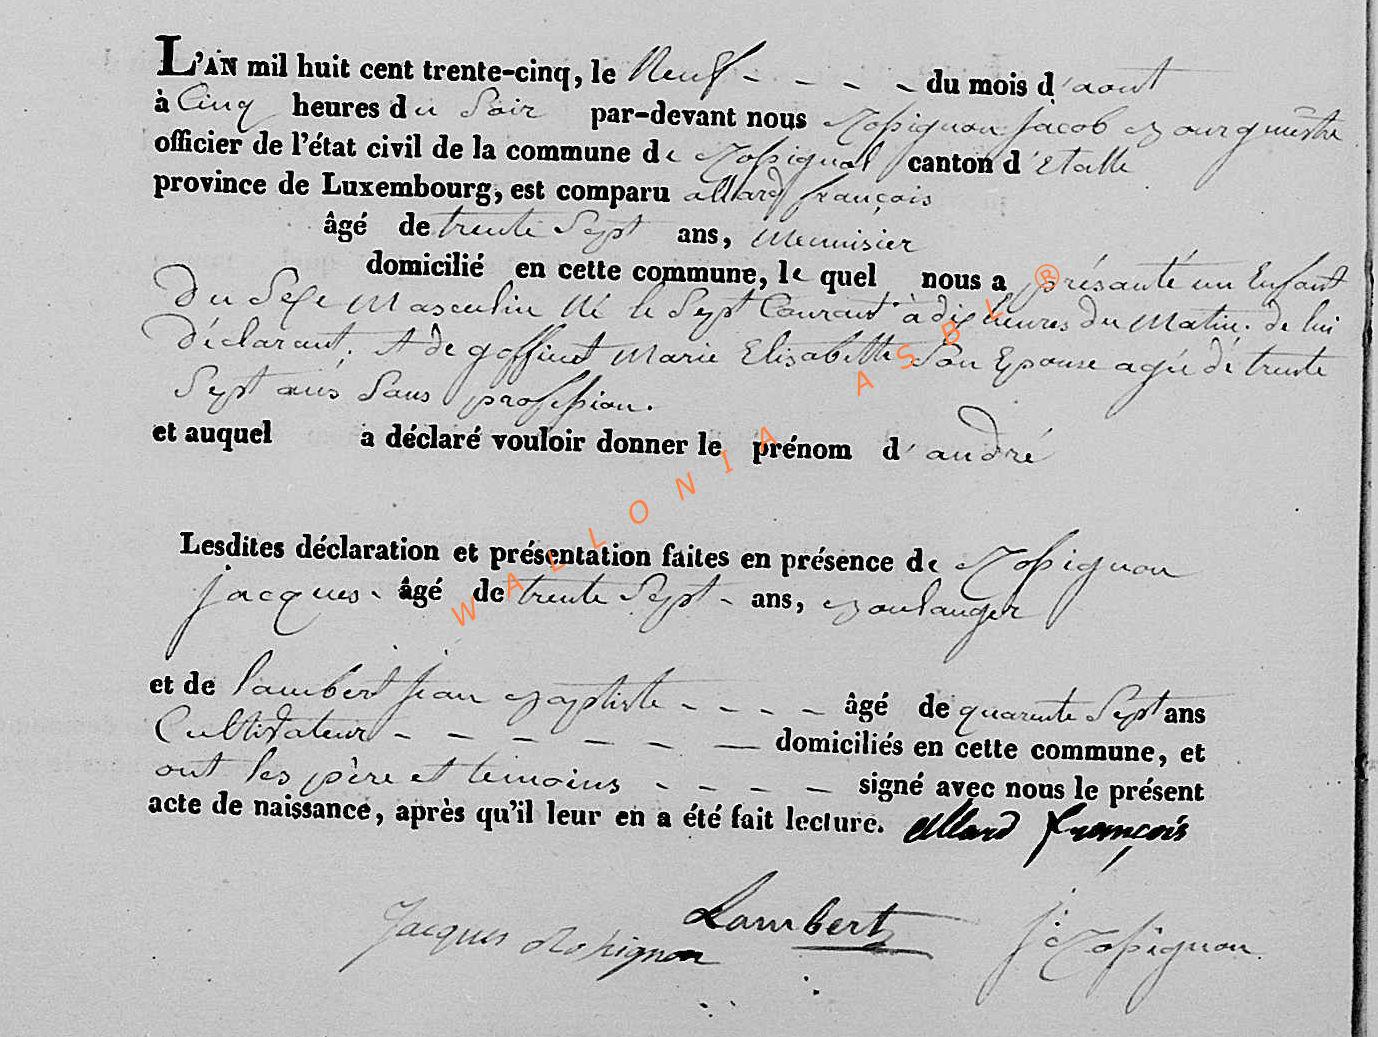 L'AN mil huit cent trente-cinq, le Neuf - - - - du mois d'aout
à Cinq heures du Soir par-devant nous Rossignon Jacob Bourguêstre
officier de l'état civil de la commune de Rossignol canton d'Etalle
province de Luxembourg, est comparu allard françois
âgé de trente Sept ans, Menuisier
domicilié en cette commune, le quel nous a présanté un Enfant
Du Sexe Masculin Né le Sept Courant à dix heures du Matin. de lui
Déclarant. et de goffinet Marie Elisabette Son Epouse agée dé trente
Sept ans Sans profession.
et auquel a déclaré vouloir donner le prénom d'andré
Lesdites déclaration et présentation faites en présence de Rossignon
jacques - âgé de trente Sept - ans, Boulanger
et de lambert jean Baptiste - - - - âgé de quarente Sept ans
Cultivateur - - - - - - domiciliés en cette commune, et
ont les père et temoins - - - - signé avec nous le présent
acte de naissance, après qu'il leur en a été fait lecture. allard françois
Jacques Rossignon Lambert J: Rossignon
WALLONIA ASBL ®